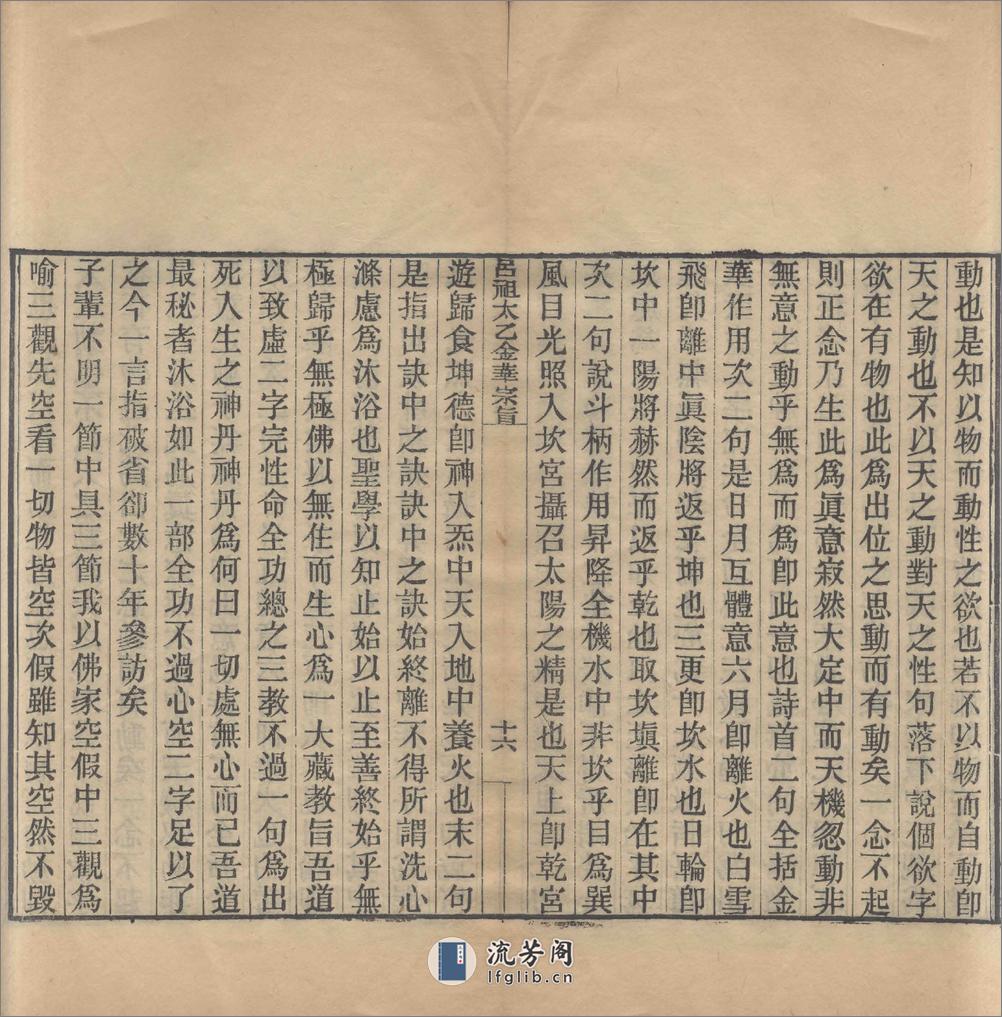 動也是知以物而動性之欲也若不以物而自動卽
天之動也不以天之動對天之性句落下說個欲字
欲在有物也此爲出位之思動而有動矣一念不起
則正念乃生此爲眞意寂然大定中而天機忽動非
無意之動乎無爲而爲卽此意也詩首二句全括金
華作用次二句是日月互體意六月卽離火也白雪
飛卽離中眞陰將返乎坤也三更卽坎水也日輪卽
坎中一陽將赫然而返乎乾也取坎塡離卽在其中
次二句說斗柄作用昇降全機水中非坎乎目爲巽
風目光照入坎宮攝召太陽之精是也天上卽乾宮
呂祖太乙金華宗旨
十六
遊歸食坤德卽神入炁中天入地中養火也末二句
是指出訣中之訣訣中之訣始終離不得所謂洗心
滌慮爲沐浴也聖學以知止始以止至善終始乎無
極歸乎無極佛以無住而生心爲一大藏教旨吾道
以致虛二字完性命全功總之三教不過一句爲出
死入生之神丹神丹爲何曰一切處無心而已吾道
最秘者沐浴如此一部全功不過心空二字足以了
之今一言指破省卻數十年參訪矣
子輩不明一節中具三節我以佛家空假中三觀爲
喻三觀先空看一切物皆空次假雖知其空然不毀
流芳阁
lfglib.cn